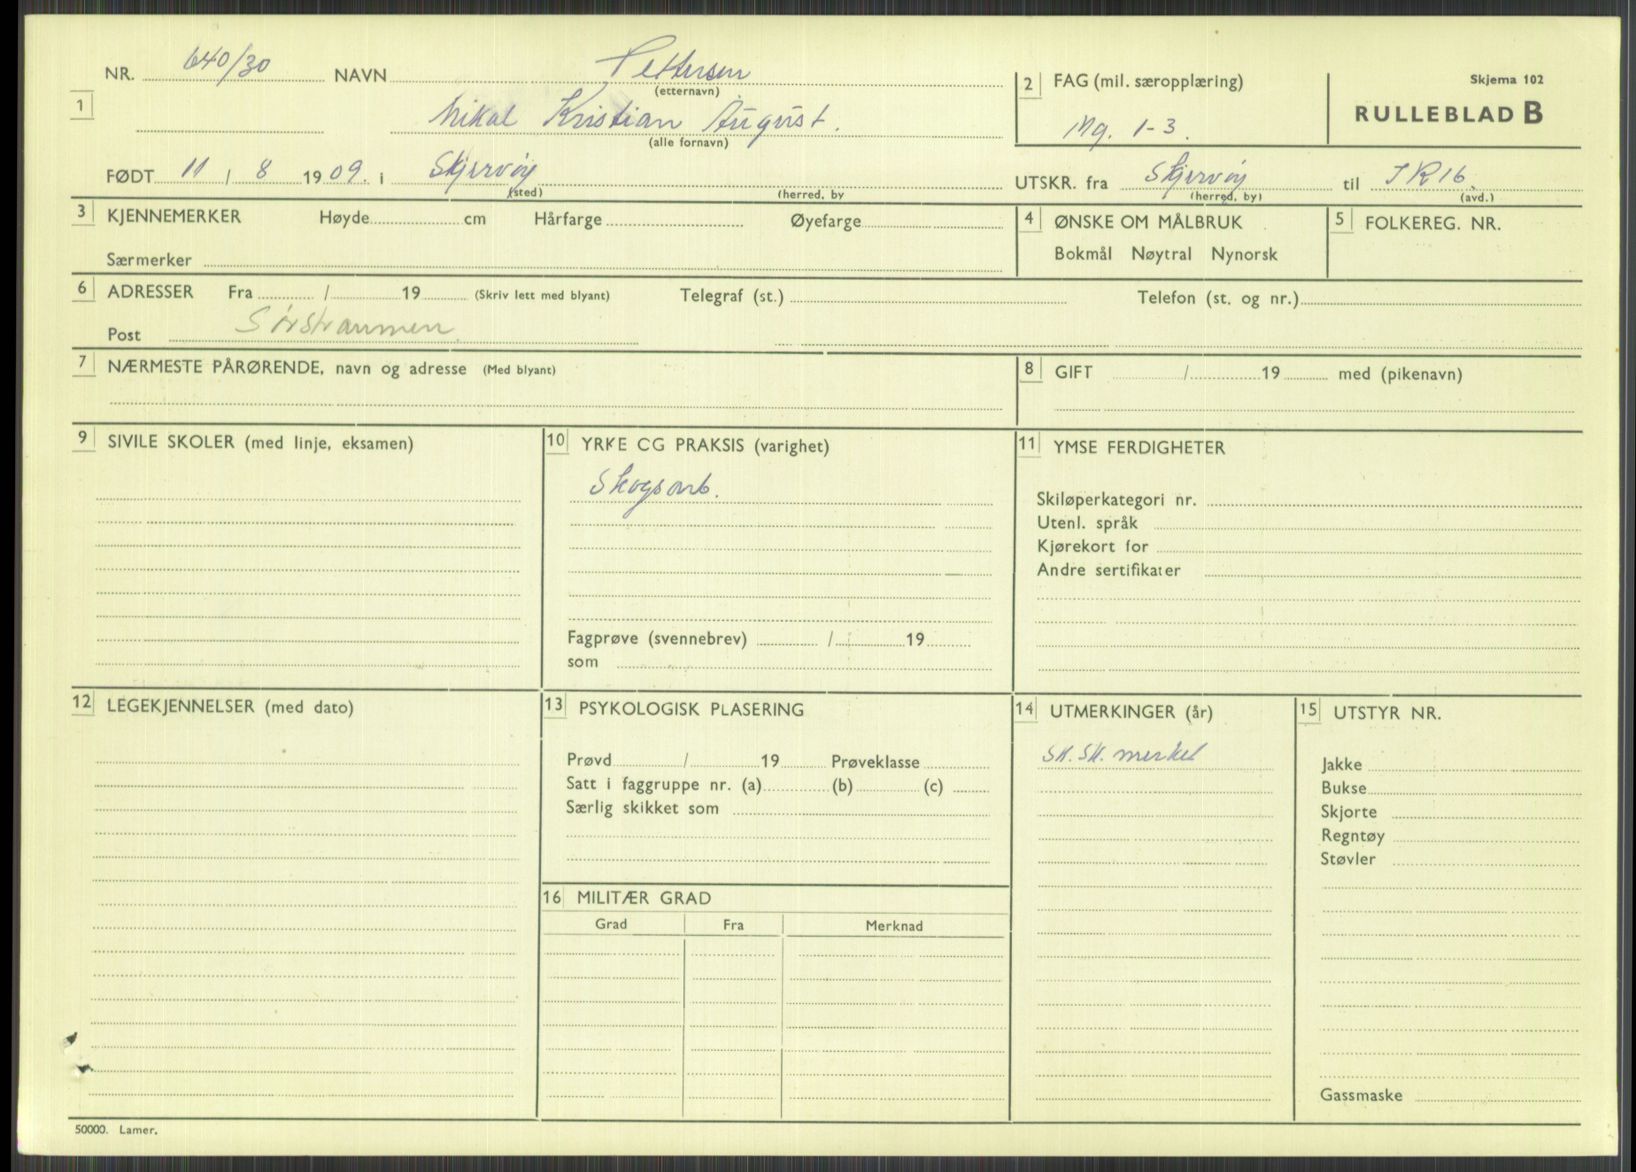 NR. 640/30 NAVN Pettersen
(etternavn)
1
Mikal Kristian August.
(alle fornavn)
2 FAG (mil. særopplæring)
Mg. 1-3.
Skjema 102
RULLEBLAD B
FØDT 11 / 8 1909. i Skjervøy
(sted) (herred, by
UTSKR. fra Skjervøy til IR16.
(herred, by) (avd.)
3 KJENNEMERKER Høyde cm Hårfarge Øyefarge
Særmerker
4 ØNSKE OM MÅLBRUK
Bokmål Nøytral Nynorsk
5 FOLKEREG. NR.
6 ADRESSER Fra / 19 (Skriv lett med blyant) Telegraf (st.) Telefon (st. og nr.)
Post Sørstraumen
7 NÆRMESTE PÅRØRENDE, navn og adresse (Med blyant)
8 GIFT / 19 med (pikenavn)
9 SIVILE SKOLER (med linje, eksamen)
10 YRKE CG PRAKSIS (varighet)
Skogsarb.
Fagprøve (svennebrev) / 19
som
11 YMSE FERDIGHETER
Skiløperkategori nr.
Utenl. språk
Kjørekort for
Andre sertifikater
12 LEGEKJENNELSER (med dato)
13 PSYKOLOGISK PLASERING
Prøvd / 19 Prøveklasse
Satt i faggruppe nr. (a) (b) (c)
Særlig skikket som
14 UTMERKINGER (år)
Sk. Sk. merket
15 UTSTYR NR.
Jakke
Bukse
Skjorte
Regntøy
Støvler
Gassmaske
16 MILITÆR GRAD
Grad Fra Merknad
50000. Lamer.